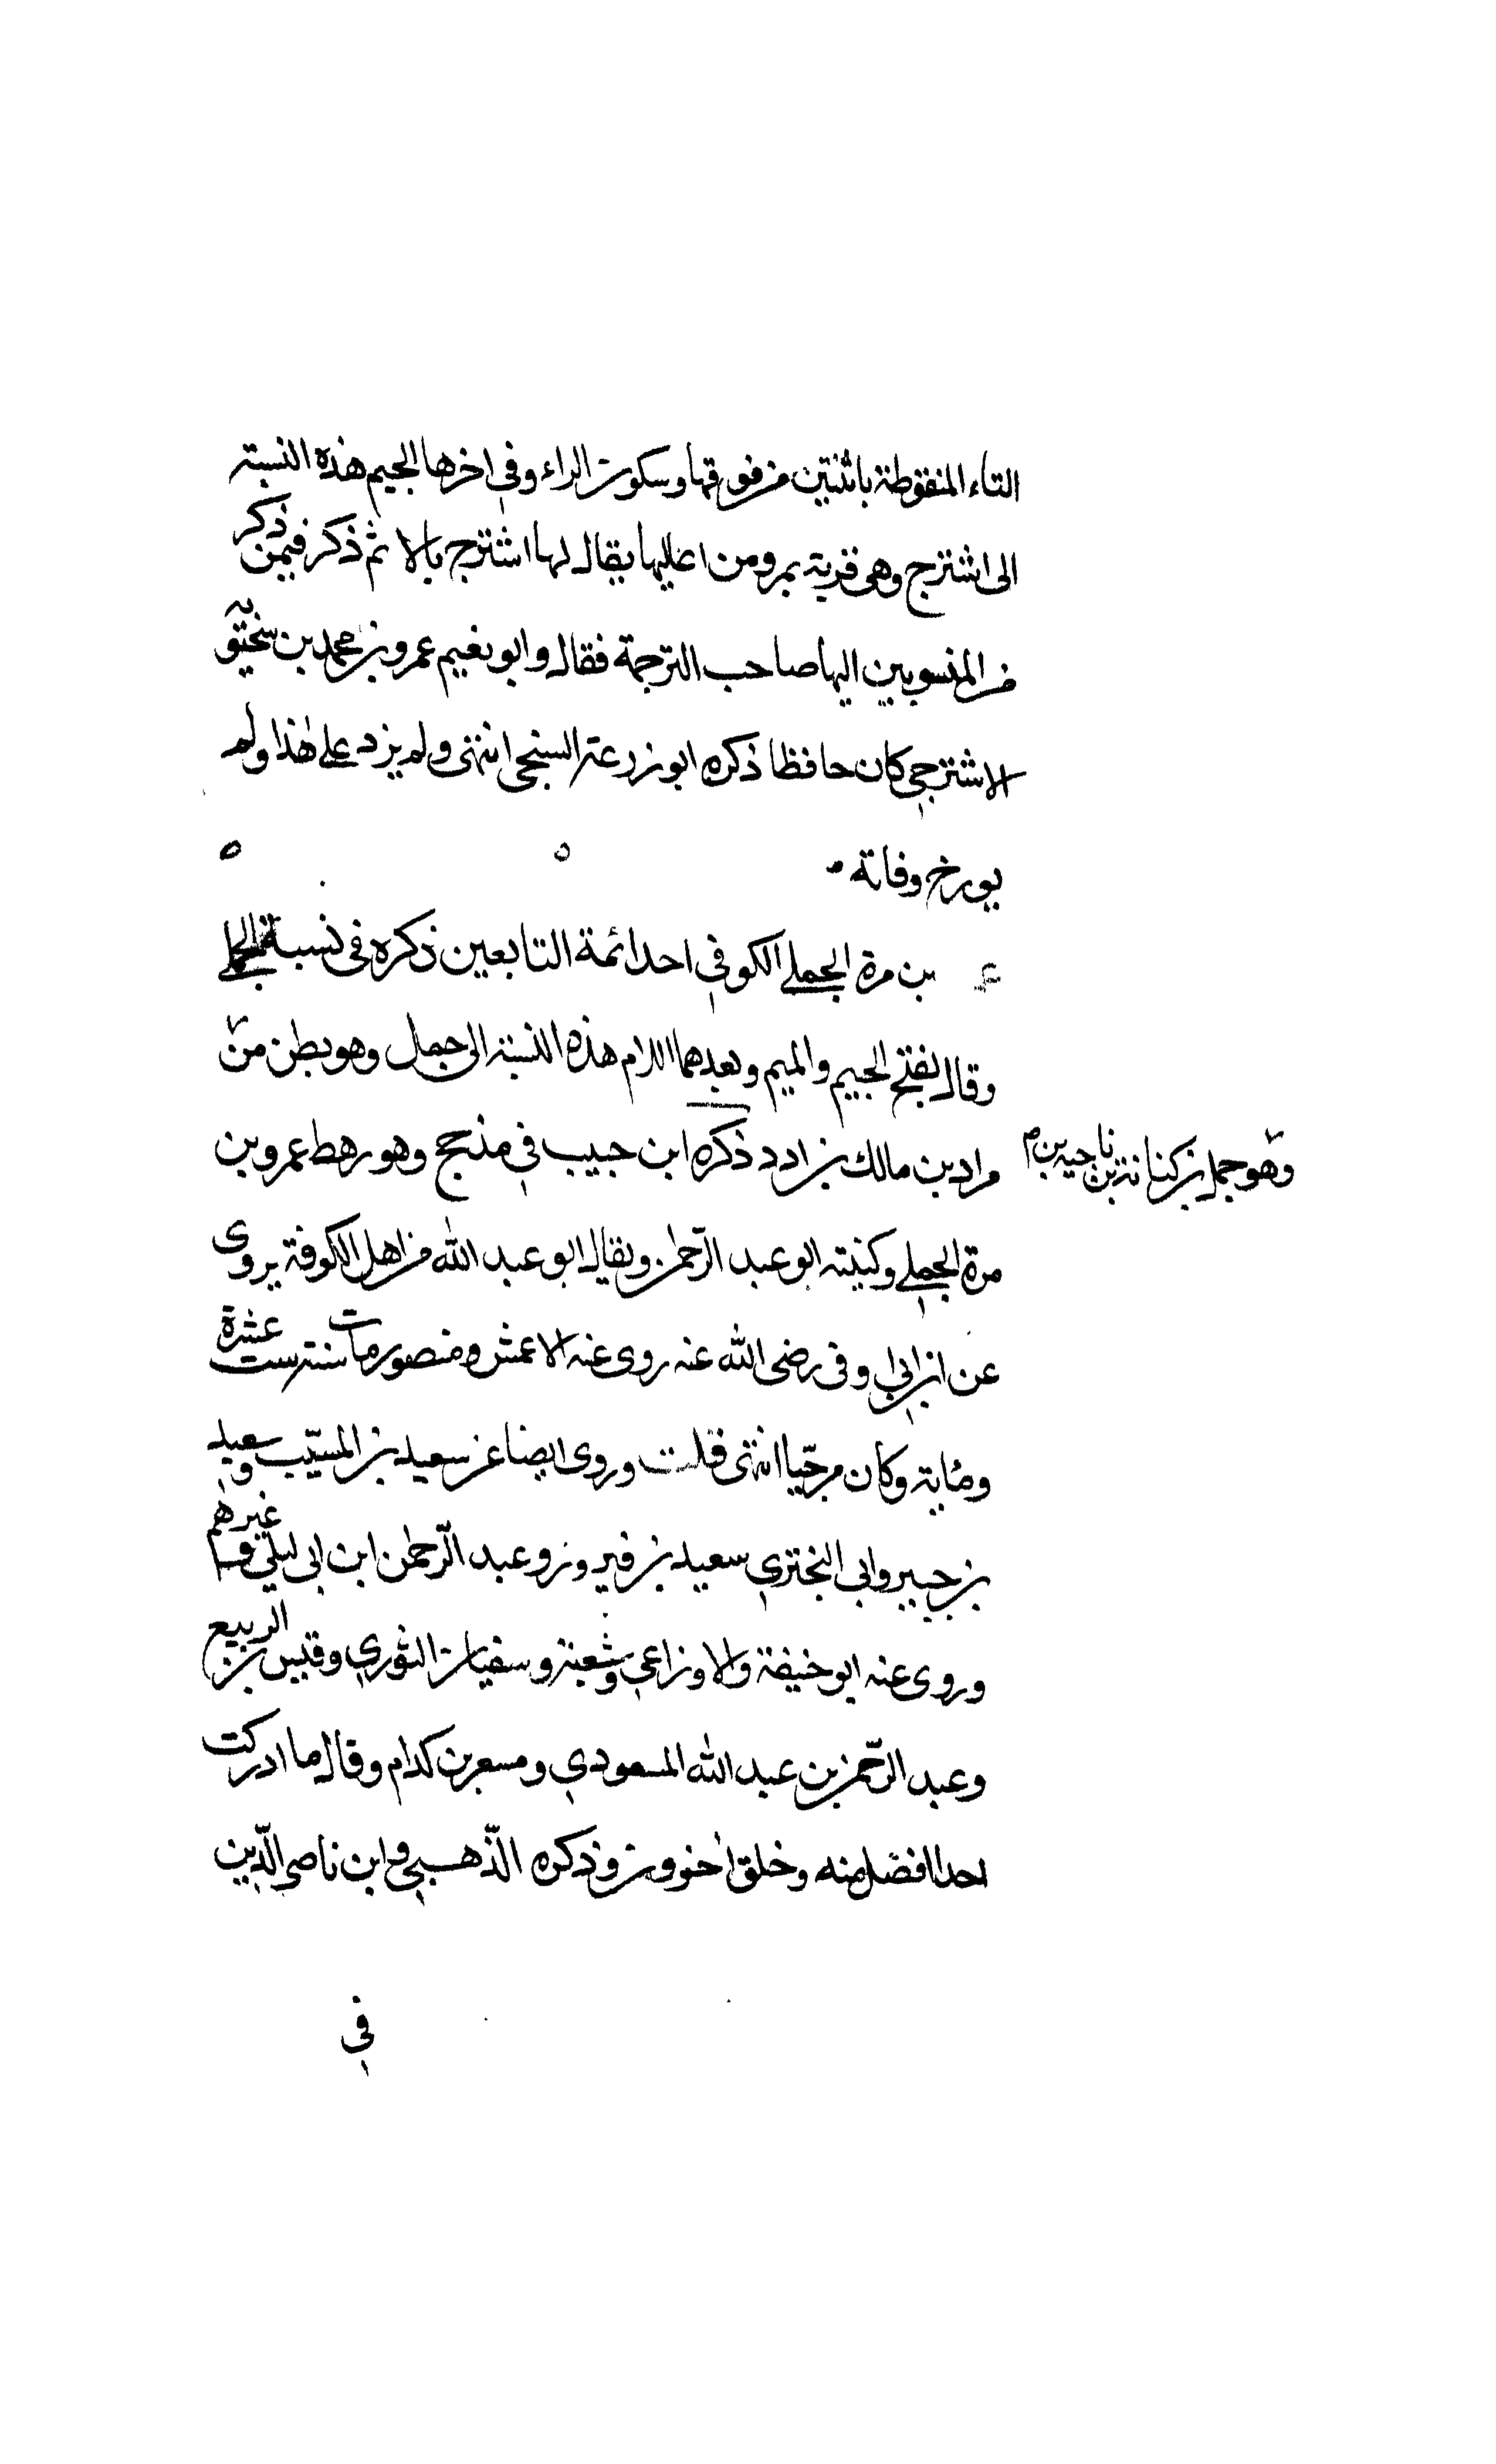 التاء المنقوطة باثنتين من فوقها وسكون الراء وفي اخرها الجيم هذه النسبة
الى اشترج وهي قرية بمرو من اعاليها يقال لها اشترج بالا ثم ذكر فيمن ذكر
من المنسوبين اليها صاحب الترجمة فقال وابو نعيم عمرو بن محمد بن
الاشترجي كان حافظا ذكره ابو زرعة السنجي انتهى ولم يزد على هذا ولم
يورخ وفاته
بن مرة الجملي الكوفي احد ائمة التابعين ذكره في نسبة الجملي
وقال بفتح الجيم والميم وبعدهما اللام هذه النسبة الى جمل وهو بطن من
مراد بن مالك بن ادد ذكره ابن حبيب في مذحج وهو رهط عمرو بن
وهو جمل بن كنانة بن ناجية بن م
مرة الجملي وكنيته ابو عبد الرحمن ويقال ابو عبد الله من اهل الكوفة يروى
عن ابن ابي اوفى رضى الله عنه روى عنه الاعمش ومنصور مات سنة ست عشرة
ومائة وكان مرجيا انتهى قلت وروى ايضا عن سعيد بن المسيب وسعيد
بن جبير وابي البختري سعيد بن فيروز وعبد الرحمن ابن ابي ليلى وغيرهم
وروى عنه ابو حنيفة والاوزاعي وشعبة وسفيان الثوري وقيس بن الربيع
وعبد الرحمن بن عبد الله المسعودي ومسعر بن كدام وقال ما ادركت
احدا افضل منه وخلق اخرون وذكره الذهبي وابن ناصر الدين
في